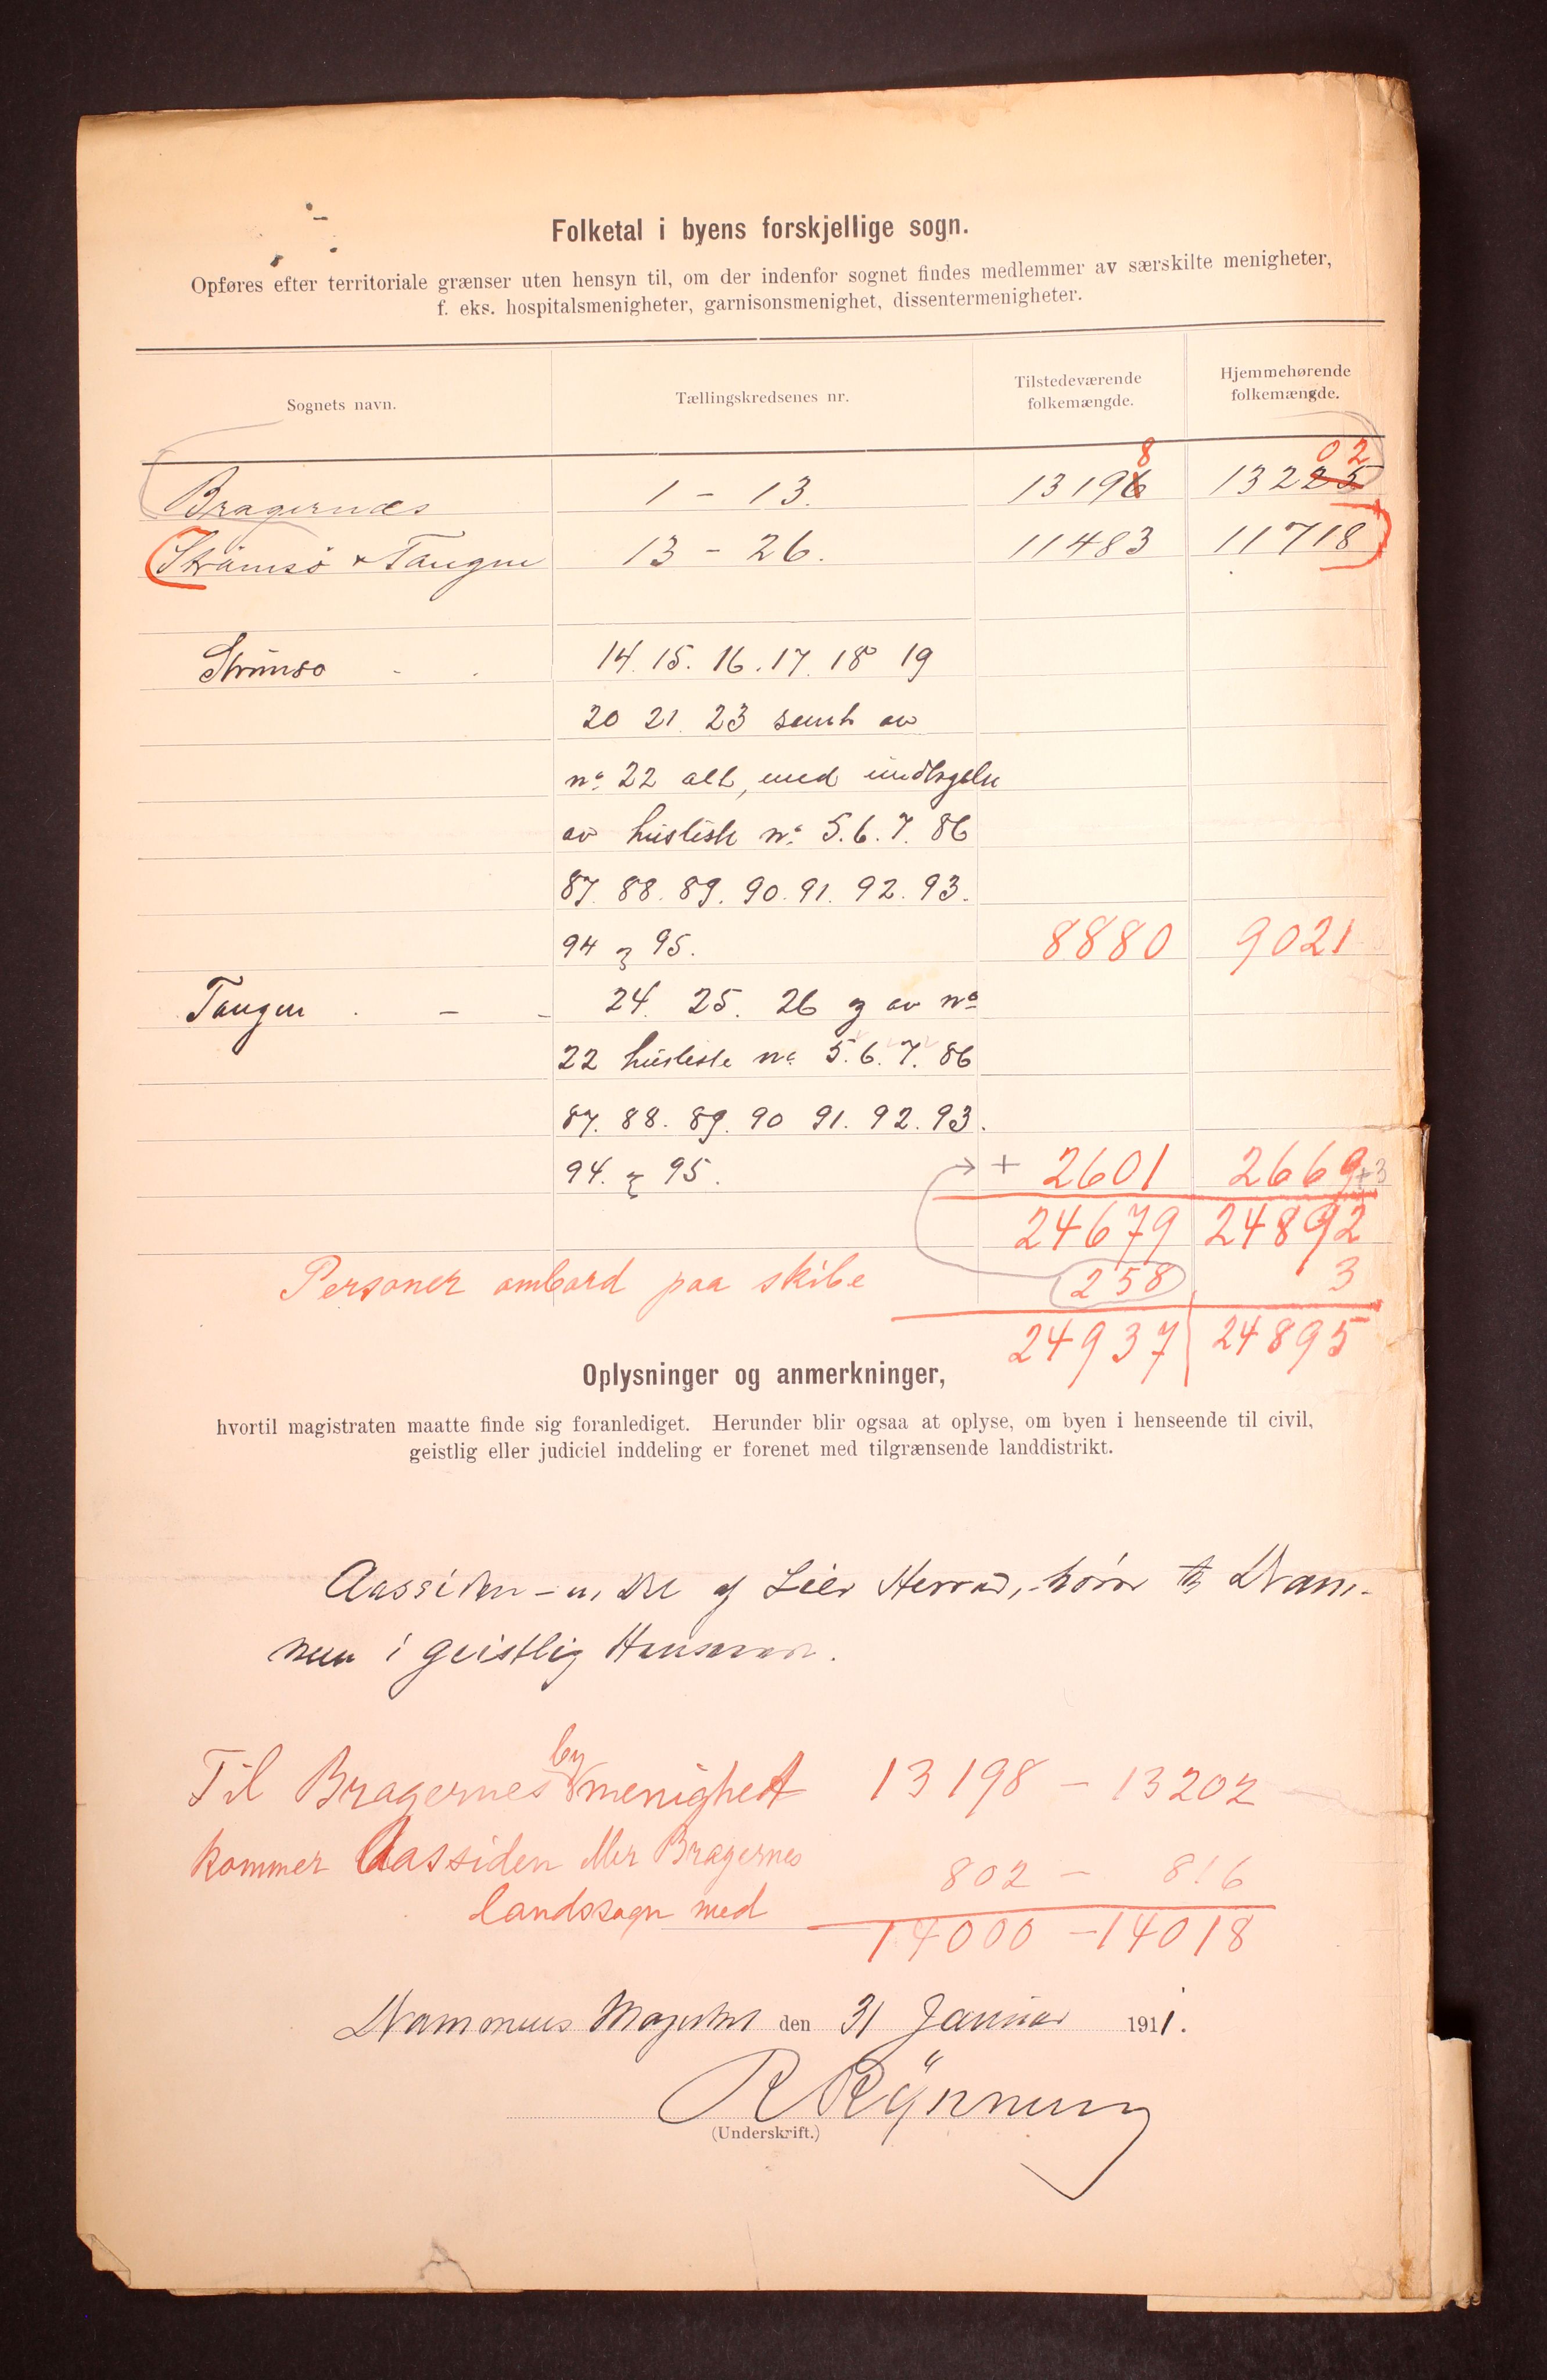 Folketal i byens forskjellige sogn.
Opføres efter territoriale grænser uten hensyn til, om der indenfor sognet findes medlemmer av særskilte menigheter,
f. eks. hospitalsmenigheter, garnisonsmenighet, dissentermenigheter.
Sognets navn. Tællingskredsenes nr. Tilstedeværende folkemængde. Hjemmehørende folkemængde.
8 02
Bragernæs 1 - 13. 13196 13225
Strømsø & Tangen 13 - 26. 11483 11718
Strømsø 14. 15. 16. 17. 18 19
20 21. 23 samt av
no 22 alt, med undtagelse
av husliste no 5. 6. 7. 86
87. 88. 89. 90. 91. 92. 93.
94 og 95. 8880 9021
Tangen - - 24. 25. 26 og av no
22 husliste no 5. 6. 7. 86
87. 88. 89. 90 91. 92. 93.
94. og 95. + 2601 2669 +3
24679 24892
Personer ombord paa skibe 258 3
24937 24895
Oplysninger og anmerkninger,
hvortil magistraten maatte finde sig foranlediget. Herunder blir ogsaa at oplyse, om byen i henseende til civil,
geistlig eller judiciel inddeling er forenet med tilgrænsende landdistrikt.
Aassiden - en Del af Lier Herred, - hører til Dram-
men i geistlig Henseende.
Til Bragernes bymenighet 13198 - 13202
kommer Aassiden eller Bragernes 802 - 816
landssogn med 14000 - 14018
Drammens Magistrat den 31 Januar 1911.
(Underskrift.)